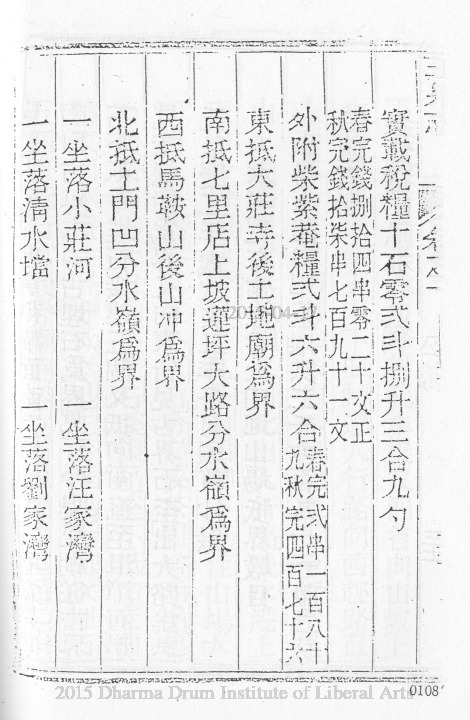 實載稅糧十石零弍斗捌升三合九勺
春完錢捌拾四串零二十文正
秋完錢拾柒串七百九十一文
外附柴紫菴糧弍斗六升六合
春完弍串一百八十
九秋完四百七十六
東抵大莊寺後土地廟爲界
南抵七里店上坡蓮坪大路分水嶺爲界
西抵馬鞍山後山冲爲界
北抵土門凹分水嶺爲界
一坐落小莊河 一坐落汪家灣
一坐落清水壋 一坐落劉家灣
0108
2015 Dharma Drum Institute of Liberal Arts